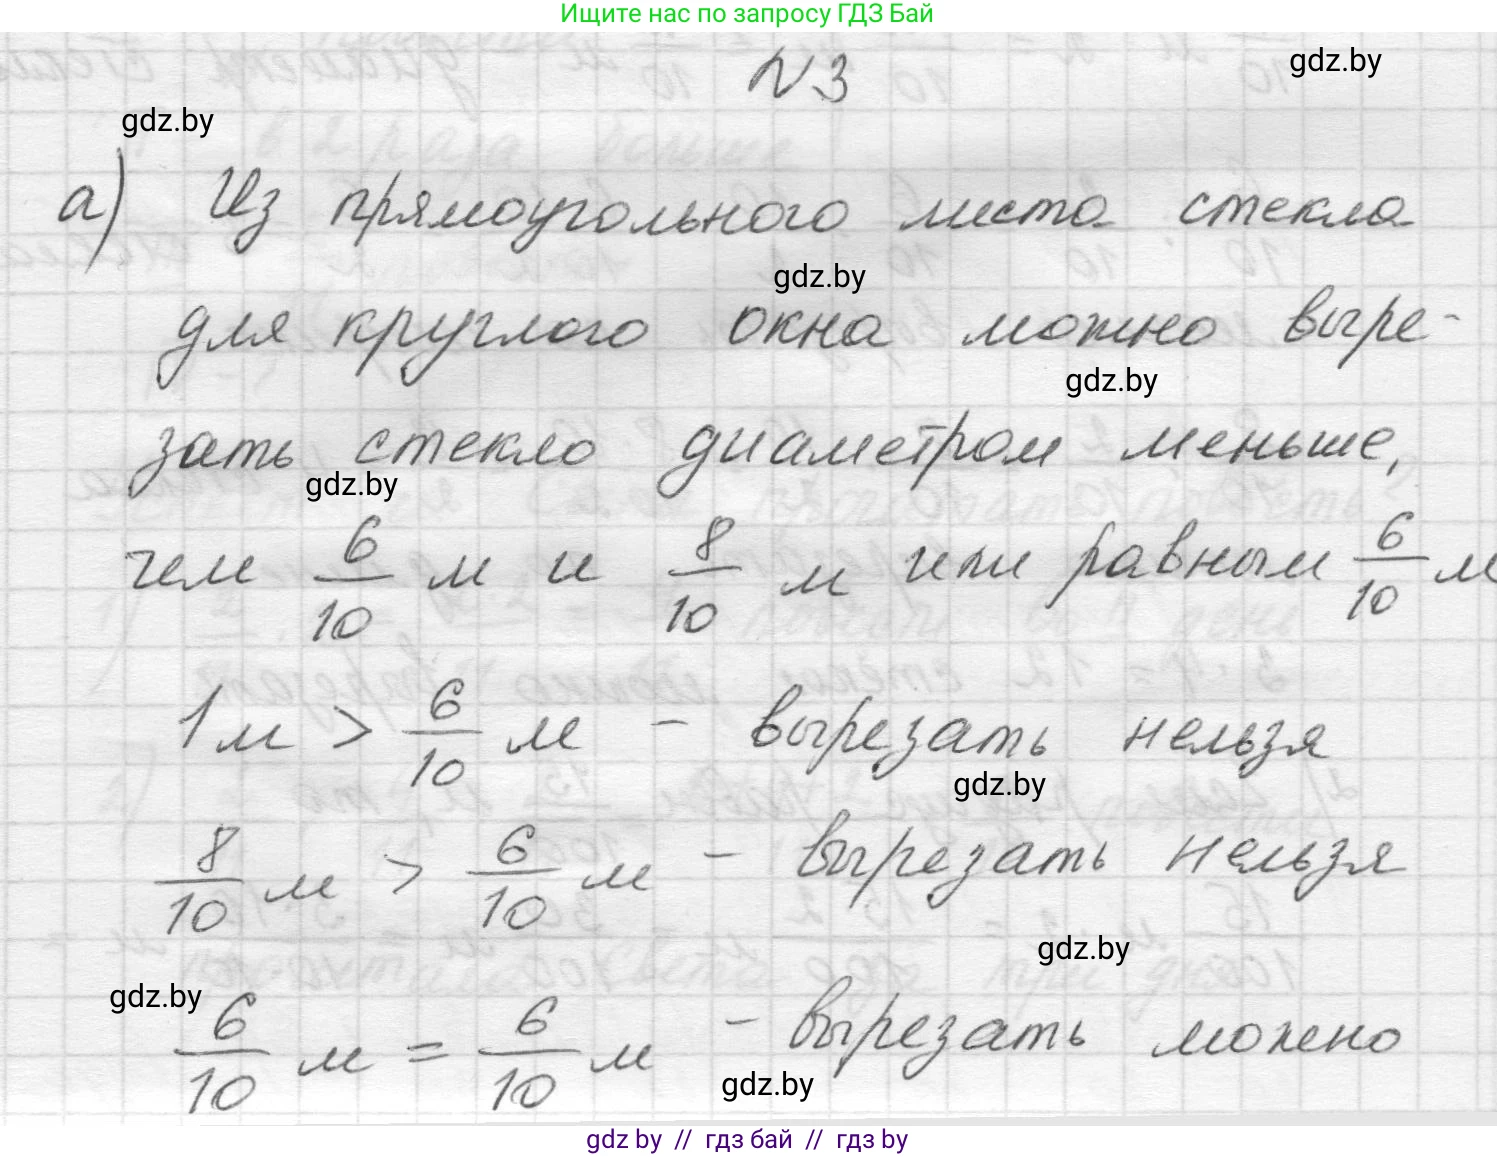 Ищите нас по запросу ГДЗ Бай
N3
gdz.by
gdz.by
а) Из прямоугольного листа стекла
gdz.by
для круглого окна можно выре-
gdz.by
зать стекло диаметром меньше,
gdz.by
чем 6/10 м и 8/10 м или равным 6/10 м
1 м > 6/10 м - вырезать нельзя
gdz.by
8/10 м > 6/10 м - вырезать нельзя
gdz.by
gdz.by
6/10 м = 6/10 м - вырезать можно
gdz.by
gdz by // гдз бай // гдз by